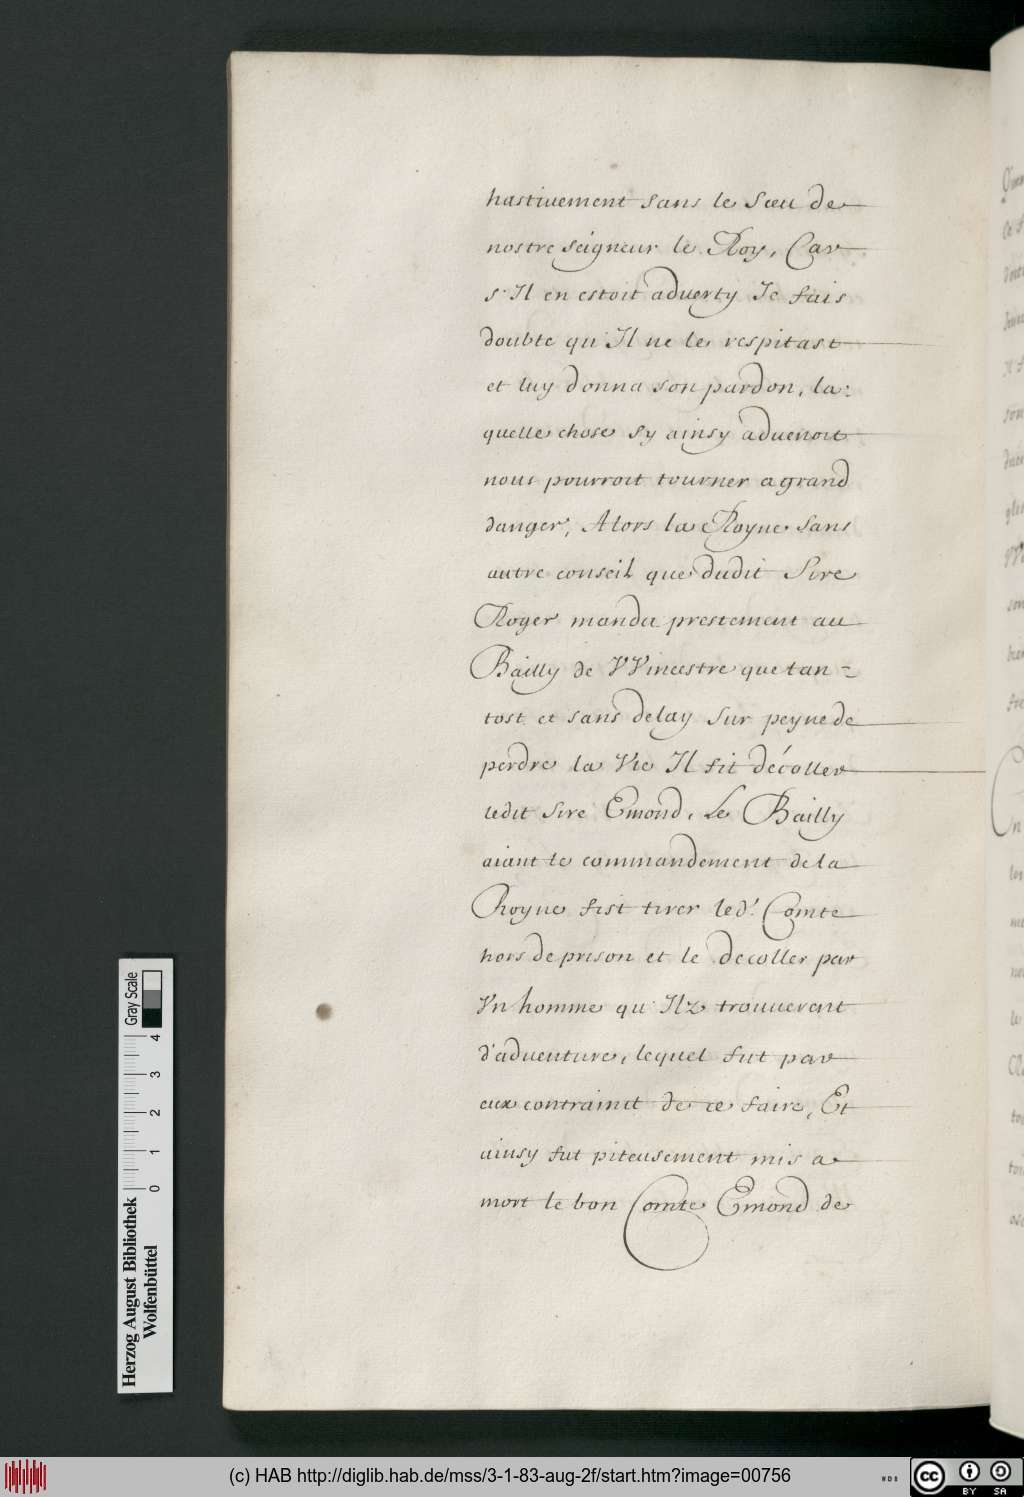 hastiuement sans le sceu de
nostre seigneur le Roy, Car
s'Il en estoit aduerty Je fais
doubte qu'Il ne le respitast
et luy donna son pardon, la:
quelle chose sy ainsy aduenoit
nous pourroit tourner a grand
danger, Alors la Royne sans
autre conseil que dudit Sire
Roger manda prestement au
Bailly de VVincestre que tan-
tost et sans delay sur peyne de
perdre la Vie Il fit décoller
ledit Sire Emond, Le Bailly
aiant le commandement de la
Royne fist tirer led.' Comte
hors de prison et le decoller par
Vn homme qu'Ilz trouuerent
d'aduenture, lequel fut par
eux contrainct de ce faire, Et
ainsy fut piteusement mis a
mort le bon Comte Emond de
Gray Scale
0 1 2 3 4
Herzog August Bibliothek
Wolfenbüttel
(c) HAB http://diglib.hab.de/mss/3-1-83-aug-2f/start.htm?image=00756
WDB
cc BY SA